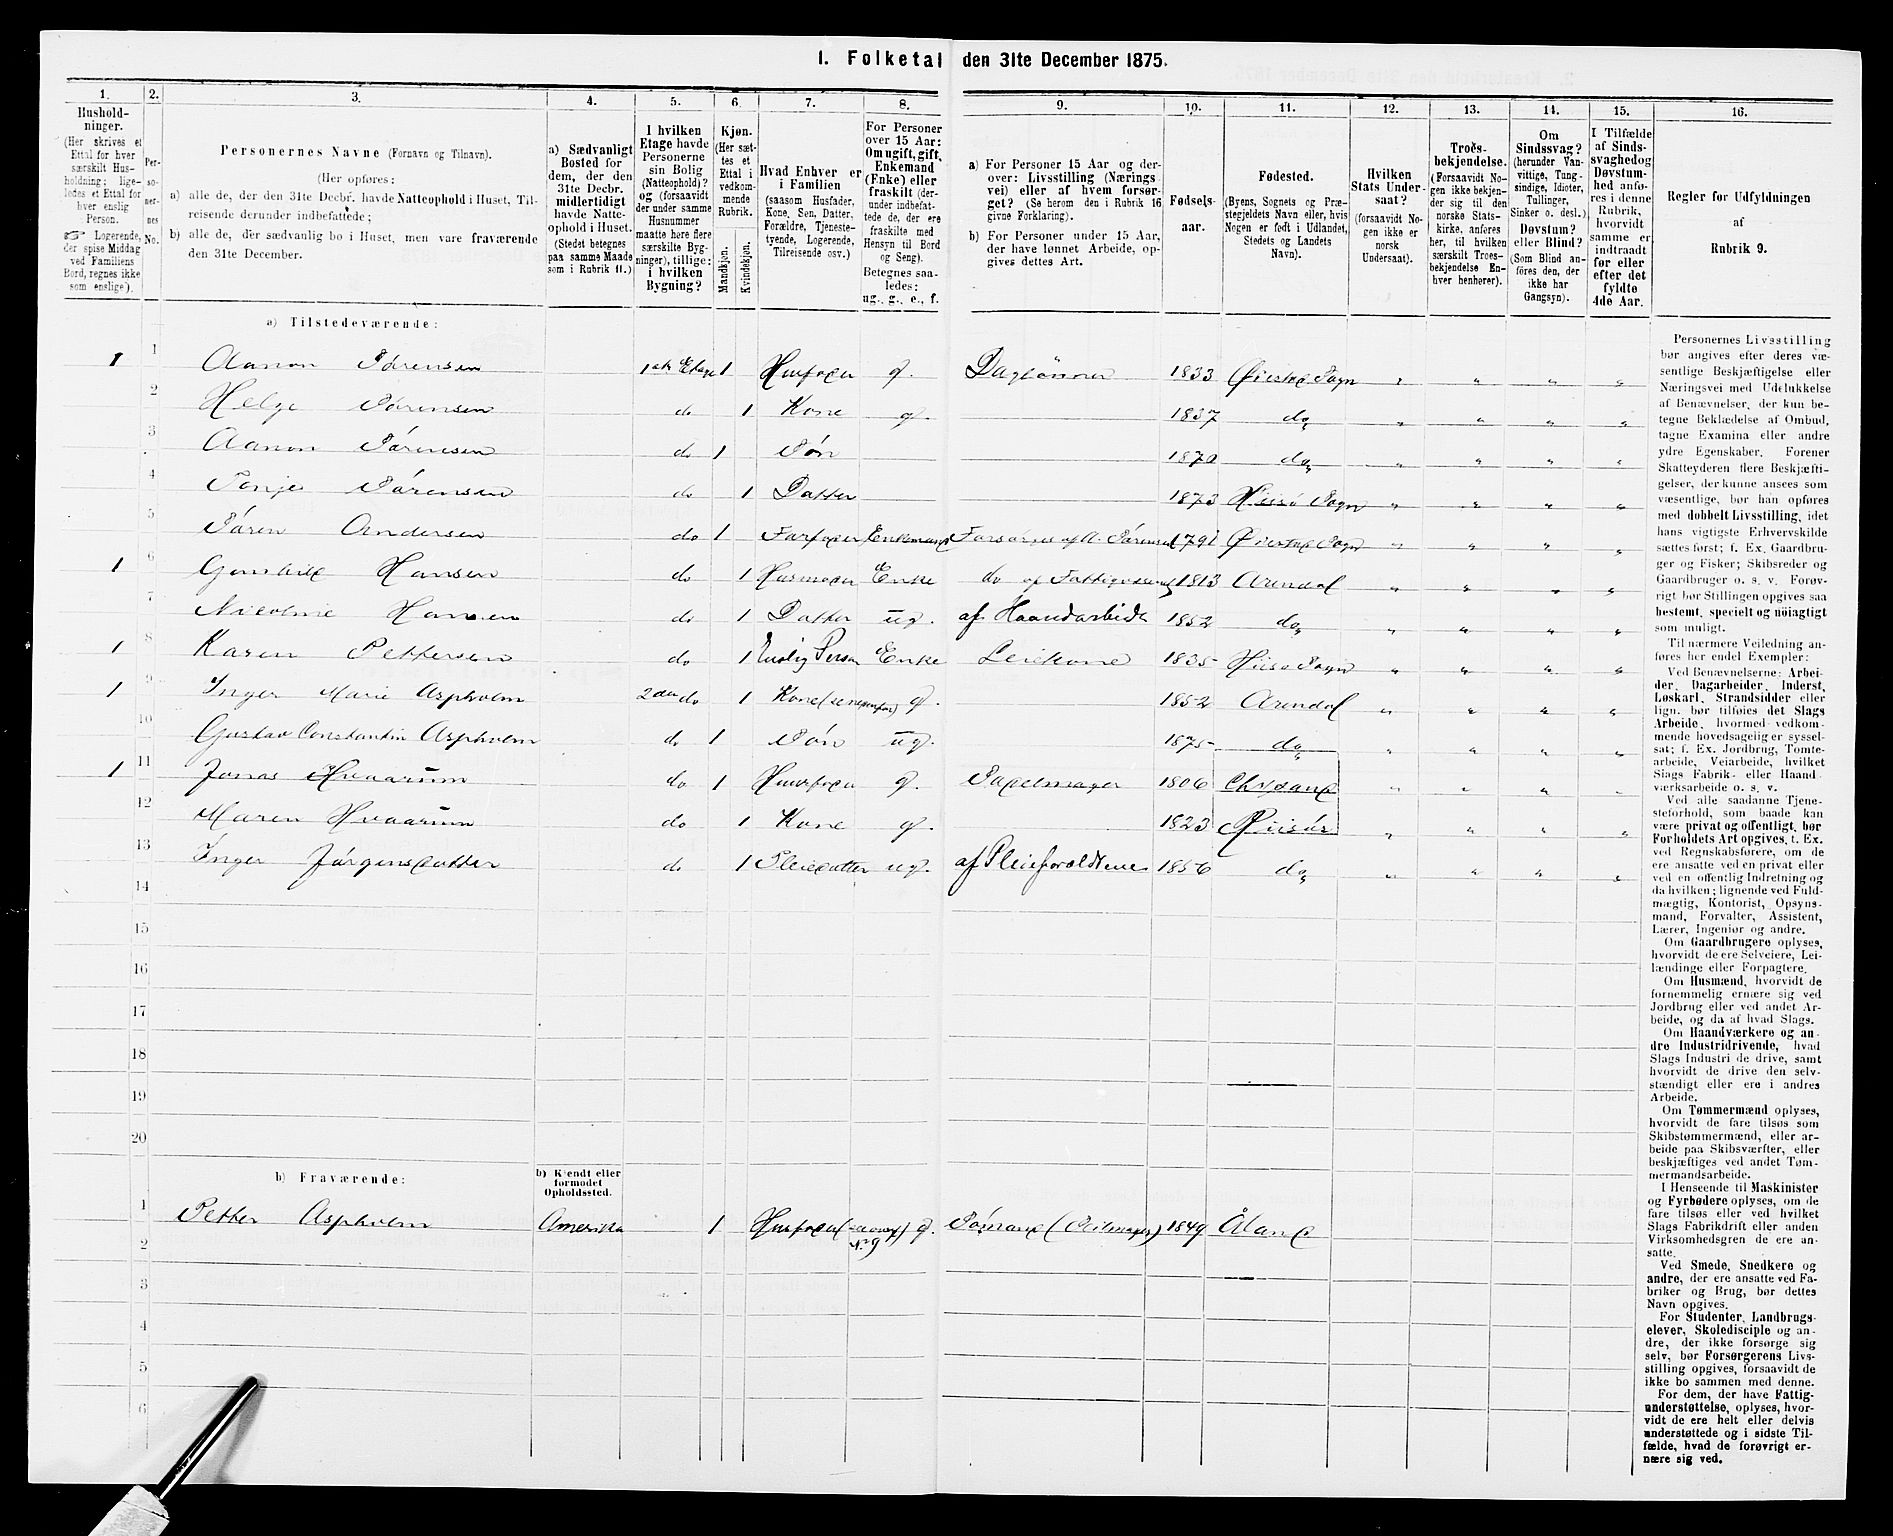 1. Folketal den 31te December 1875.
1. 2. 3. 4. 5. 6. 7. 8. 9. 10. 11. 12. 13. 14. 15. 16.
Hushold-
ninger.
(Her skrives et
Ettal for hver
særskilt Hus-
holdning; lige-
ledes et Ettal for
hver enslig
Person.
☞ Logerende,
der spise Middag
ved Familiens
Bord, regnes ikke
som enslige).
Per-
so-
ner-
nes
No.
Personernes Navne (Fornavn og Tilnavn).
(Her opføres:
a) alle de, der den 31te Decbr. havde Natteophold i Huset, Til-
reisende derunder indbefattede;
b) alle de, der sædvanlig bo i Huset, men vare fraværende
den 31te December.
a) Sædvanligt
Bosted for
dem, der den
31te Decbr.
midlertidigt
havde Natte-
ophold i Huset.
(Stedet betegnes
paa samme Maade
som i Rubrik 11.)
I hvilken
Etage havde
Personerne
sin Bolig
(Natteophold)?
og (forsaavidt
der under samme
Husnummer
maatte høre flere
særskilte Byg-
ninger), tillige:
i hvilken
Bygning?
Kjøn.
(Her sæt-
tes et
Ettal i
vedkom-
mende
Rubrik.
Mandkjøn.
Kvindekjøn.
Hvad Enhver er
i Familien
(saasom Husfader,
Kone, Søn, Datter,
Forældre, Tjeneste-
tyende, Logerende,
Tilreisende osv.)
For Personer
over 15 Aar:
Om ugift, gift,
Enkemand
(Enke) eller
fraskilt (der-
under indbefat-
tede de, der ere
fraskilte med
Hensyn til Bord
og Seng).
Betegnes saa-
ledes:
ug., g., e., f.
a) For Personer 15 Aar og der-
over: Livsstilling (Nærings
vei) eller af hvem forsør-
get? (Se herom den i Rubrik 16
givne Forklaring).
b) For Personer under 15 Aar,
der have lønnet Arbeide, op-
gives dettes Art.
Fødsels-
aar.
Fødested.
(Byens, Sognets og Præ-
stegjeldets Navn eller, hvis
Nogen er født i Udlandet,
Stedets og Landets
Navn).
Hvilken
Stats Under-
saat?
(forsaavidt No-
gen ikke er
norsk
Undersaat).
Troes-
bekjendelse.
(Forsaavidt No-
gen ikke bekjen-
der sig til den
norske Stats-
kirke, anføres
her, til hvilken
særskilt Troes-
bekjendelse En-
hver henhører).
Om
Sindssvag?
(herunder Van-
vittige, Tung-
sindige, Idioter,
Tullinger,
Sinker o. desl.)
Døvstum?
eller Blind?
(Som Blind an-
føres den, der
ikke har
Gangsyn).
I Tilfælde
af Sinds-
svaghed og
Døvstum-
hed anfø-
res i denne
Rubrik,
hvorvidt
samme er
indtraadt
før eller
efter det
fyldte
4de Aar.
Regler for Udfyldningen
af
Rubrik 9.
a) Tilstedeværende:
1 1 Aanon Sörensen 1ste Etage 1 Husfader g. Daglönner 1833 Öiestad Sogn " " " "
2 Helge Sörensen do 1 Kone g. 1837 do " " " "
3 Aanon Sörensen do 1 Sön 1870 do " " " "
4 Tonje Sörensen do 1 Datter 1873 Hisö Sogn " " " "
5 Sören Andersen do 1 Farfader Enkemand Forsörges af A. Sörensen 1791 Öiestad Sogn " " " "
1 6 Gunhild Hansen do 1 Husmoder Enke do af Fattigvæsenet 1813 Arendal " " " "
7 Nicoline Hansen do 1 Datter ug. af Haandarbide 1852 do " " " "
1 8 Karen Pettersen do 1 Enslig Person Enke Leiekone 1835 Hisö Sogn " " " "
1 9 Inger Marie Aspholm 2den do 1 Kone g. 1852 Arendal " " " "
10 Gustav Constantin Aspholm do 1 Sön ug. 1875 do " " " "
1 11 Jonas Hvaarum do 1 Huusfader g. Sadelmager 1806 Chrsand " " " "
12 Maren Hvaarum do 1 Kone g. 1823 Riisör " " " "
13 Inger Jörgensdatter do 1 Pleiedatter ug. af Pleieforældrene 1856 do " " " "
14
15
16
17
18
19
20
b) Fraværende:
b) Kjendt eller
formodet
Opholdssted.
1 Petter Aspholm Amerika 1 Husfader No 9 g. Sömand (Seilmager) 1849 Åland
2
3
4
5
6
Personernes Livsstilling
bør angives efter deres væ-
sentlige Beskjæftigelse eller
Næringsvei med Udelukkelse
af Benævnelser, der kun be-
tegne Beklædelse af Ombud,
tagne Examina eller andre
ydre Egenskaber. Forener
Skatteyderen flere Beskjæfti-
gelser, der kunne ansees som
væsentlige, bør han opføres
med dobbelt Livsstilling, idet
hans vigtigste Erhvervskilde
sættes først; f. Ex. Gaardbru-
ger og Fisker; Skibsreder og
Gaardbruger o. s. v. Forøv-
rigt bør Stillingen opgives saa
bestemt, specielt og nøiagtigt
som muligt.
Til nærmere Veiledning an-
føres her endel Exempler:
Ved Benævnelserne: Arbei-
der, Dagarbeider, Inderst,
Løskarl, Strandsidder eller
lign. bør tilføies det Slags
Arbeide, hvormed vedkom-
mende hovedsagelig er syssel-
sat; f. Ex. Jordbrug, Tomte-
arbeide, Veiarbeide, hvilket
Slags Fabrik- eller Haand
værksarbeide o. s. v.
Ved alle saadanne Tjene-
steforhold, som baade kan
være privat og offentligt, bør
Forholdets Art opgives, t. Ex.
ved Regnskabsførere, om de
ere ansatte ved en privat eller
ved en offentlig Indretning og
da hvilken; lignende ved Fuld-
mægtig, Kontorist, Opsyns-
mand, Forvalter, Assistent,
Lærer, Ingeniør og andre.
Om Gaardbrugere oplyses,
hvorvidt de ere Selveiere, Lei-
lændinge eller Forpagtere.
Om Husmænd, hvorvidt de
fornemmelig ernære sig ved
Jordbrug eller ved andet Ar-
beide, og da af hvad Slags.
Om Haandværkere og an-
dre Industridrivende, hvad
Slags Industri de drive, samt
hvorvidt de drive den selv-
stændigt eller ere i andres
Arbeide.
Om Tømmermænd oplyses,
hvorvidt de fare tilsøs som
Skibstømmermænd, eller ar-
beide paa Skibsværfter, eller
beskjæftiges ved andet Tøm-
mermandsarbeide.
I Henseende til Maskinister
og Fyrbødere oplyses, om de
fare tilsøs eller ved hvilket
Slags Fabrikdrift eller anden
Virksomhedsgren de ere an-
satte.
Ved Smede, Snedkere og
andre, der ere ansatte ved Fa-
briker og Brug, bør dettes
Navn opgives.
For Studenter, Landbrugs-
elever, Skoledisciple og an-
dre, der ikke forsørge sig
selv, bør Forsørgerens Livs-
stilling opgives, forsaavidt de
ikke bo sammen med denne.
For dem, der have Fattig-
understøttelse, oplyses, hvor-
vidt de ere helt eller delvis
understøttede og i sidste Til-
fælde, hvad de forøvrigt er-
nære sig ved.